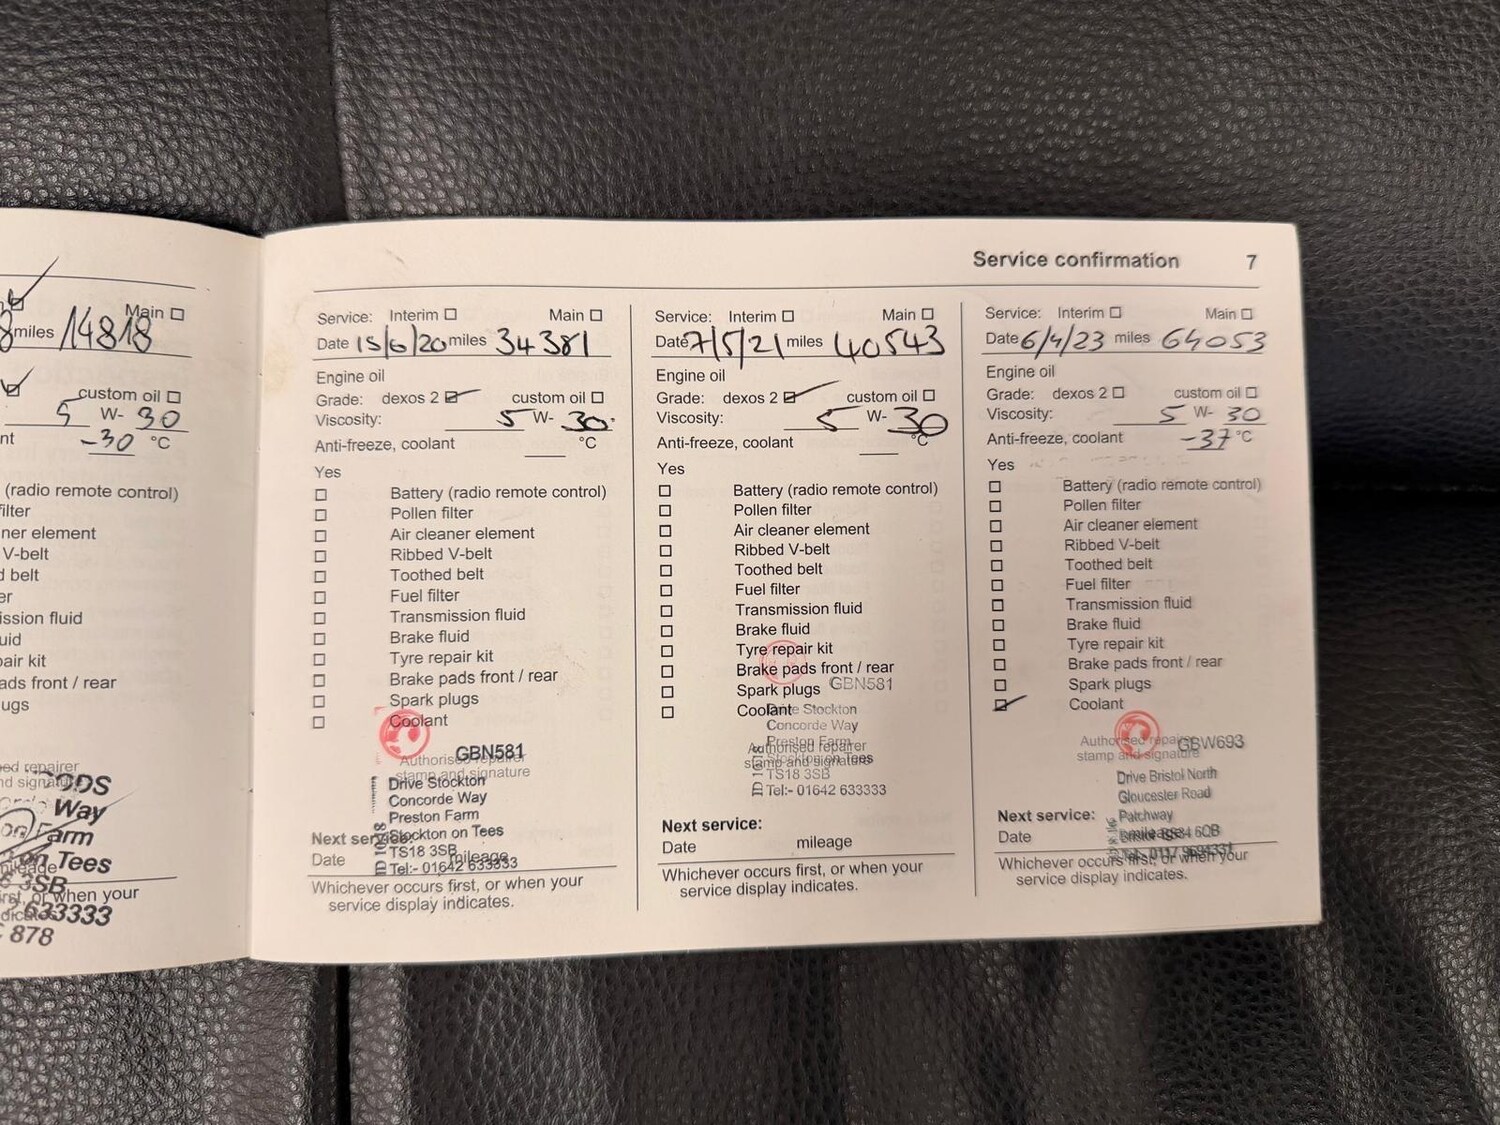 Service confirmation 7
Main
miles 14818
custom oil
5 W- 30
-30 °C
(radio remote control)
filter
ner element
V-belt
d belt
er
ission fluid
uid
air kit
ads front / rear
ugs
ed repairer
nd signature
ODS
Way
Farm
on Tees
3SB
633333
878
Service: Interim Main
Date 15/6/20 miles 34381
Engine oil
Grade: dexos 2 custom oil
Viscosity: 5 W- 30
Anti-freeze, coolant °C
Yes
Battery (radio remote control)
Pollen filter
Air cleaner element
Ribbed V-belt
Toothed belt
Fuel filter
Transmission fluid
Brake fluid
Tyre repair kit
Brake pads front / rear
Spark plugs
Coolant
GBN581
Authorised repairer
stamp and signature
Drive Stockton
Concorde Way
Preston Farm
Stockton on Tees
TS18 3SB
Tel:- 01642 633333
Next service:
Date mileage
Whichever occurs first, or when your
service display indicates.
Service: Interim Main
Date 7/5/21 miles 40543
Engine oil
Grade: dexos 2 custom oil
Viscosity: 5 W- 30
Anti-freeze, coolant °C
Yes
Battery (radio remote control)
Pollen filter
Air cleaner element
Ribbed V-belt
Toothed belt
Fuel filter
Transmission fluid
Brake fluid
Tyre repair kit
Brake pads front / rear
Spark plugs
GBN581
Coolant
Drive Stockton
Concorde Way
Preston Farm
Authorised repairer
stamp and signature
Stockton on Tees
TS18 3SB
Tel:- 01642 633333
Next service:
Date mileage
Whichever occurs first, or when your
service display indicates.
Service: Interim Main
Date 6/4/23 miles 64053
Engine oil
Grade: dexos 2 custom oil
Viscosity: 5 W- 30
Anti-freeze, coolant -37 °C
Yes
Battery (radio remote control)
Pollen filter
Air cleaner element
Ribbed V-belt
Toothed belt
Fuel filter
Transmission fluid
Brake fluid
Tyre repair kit
Brake pads front / rear
Spark plugs
Coolant
Authorised repairer
GBW693
stamp and signature
Drive Bristol North
Gloucester Road
Patchway
Next service:
Date mileage
Bristol BS34 6QB
Whichever occurs first, or when your
service display indicates.